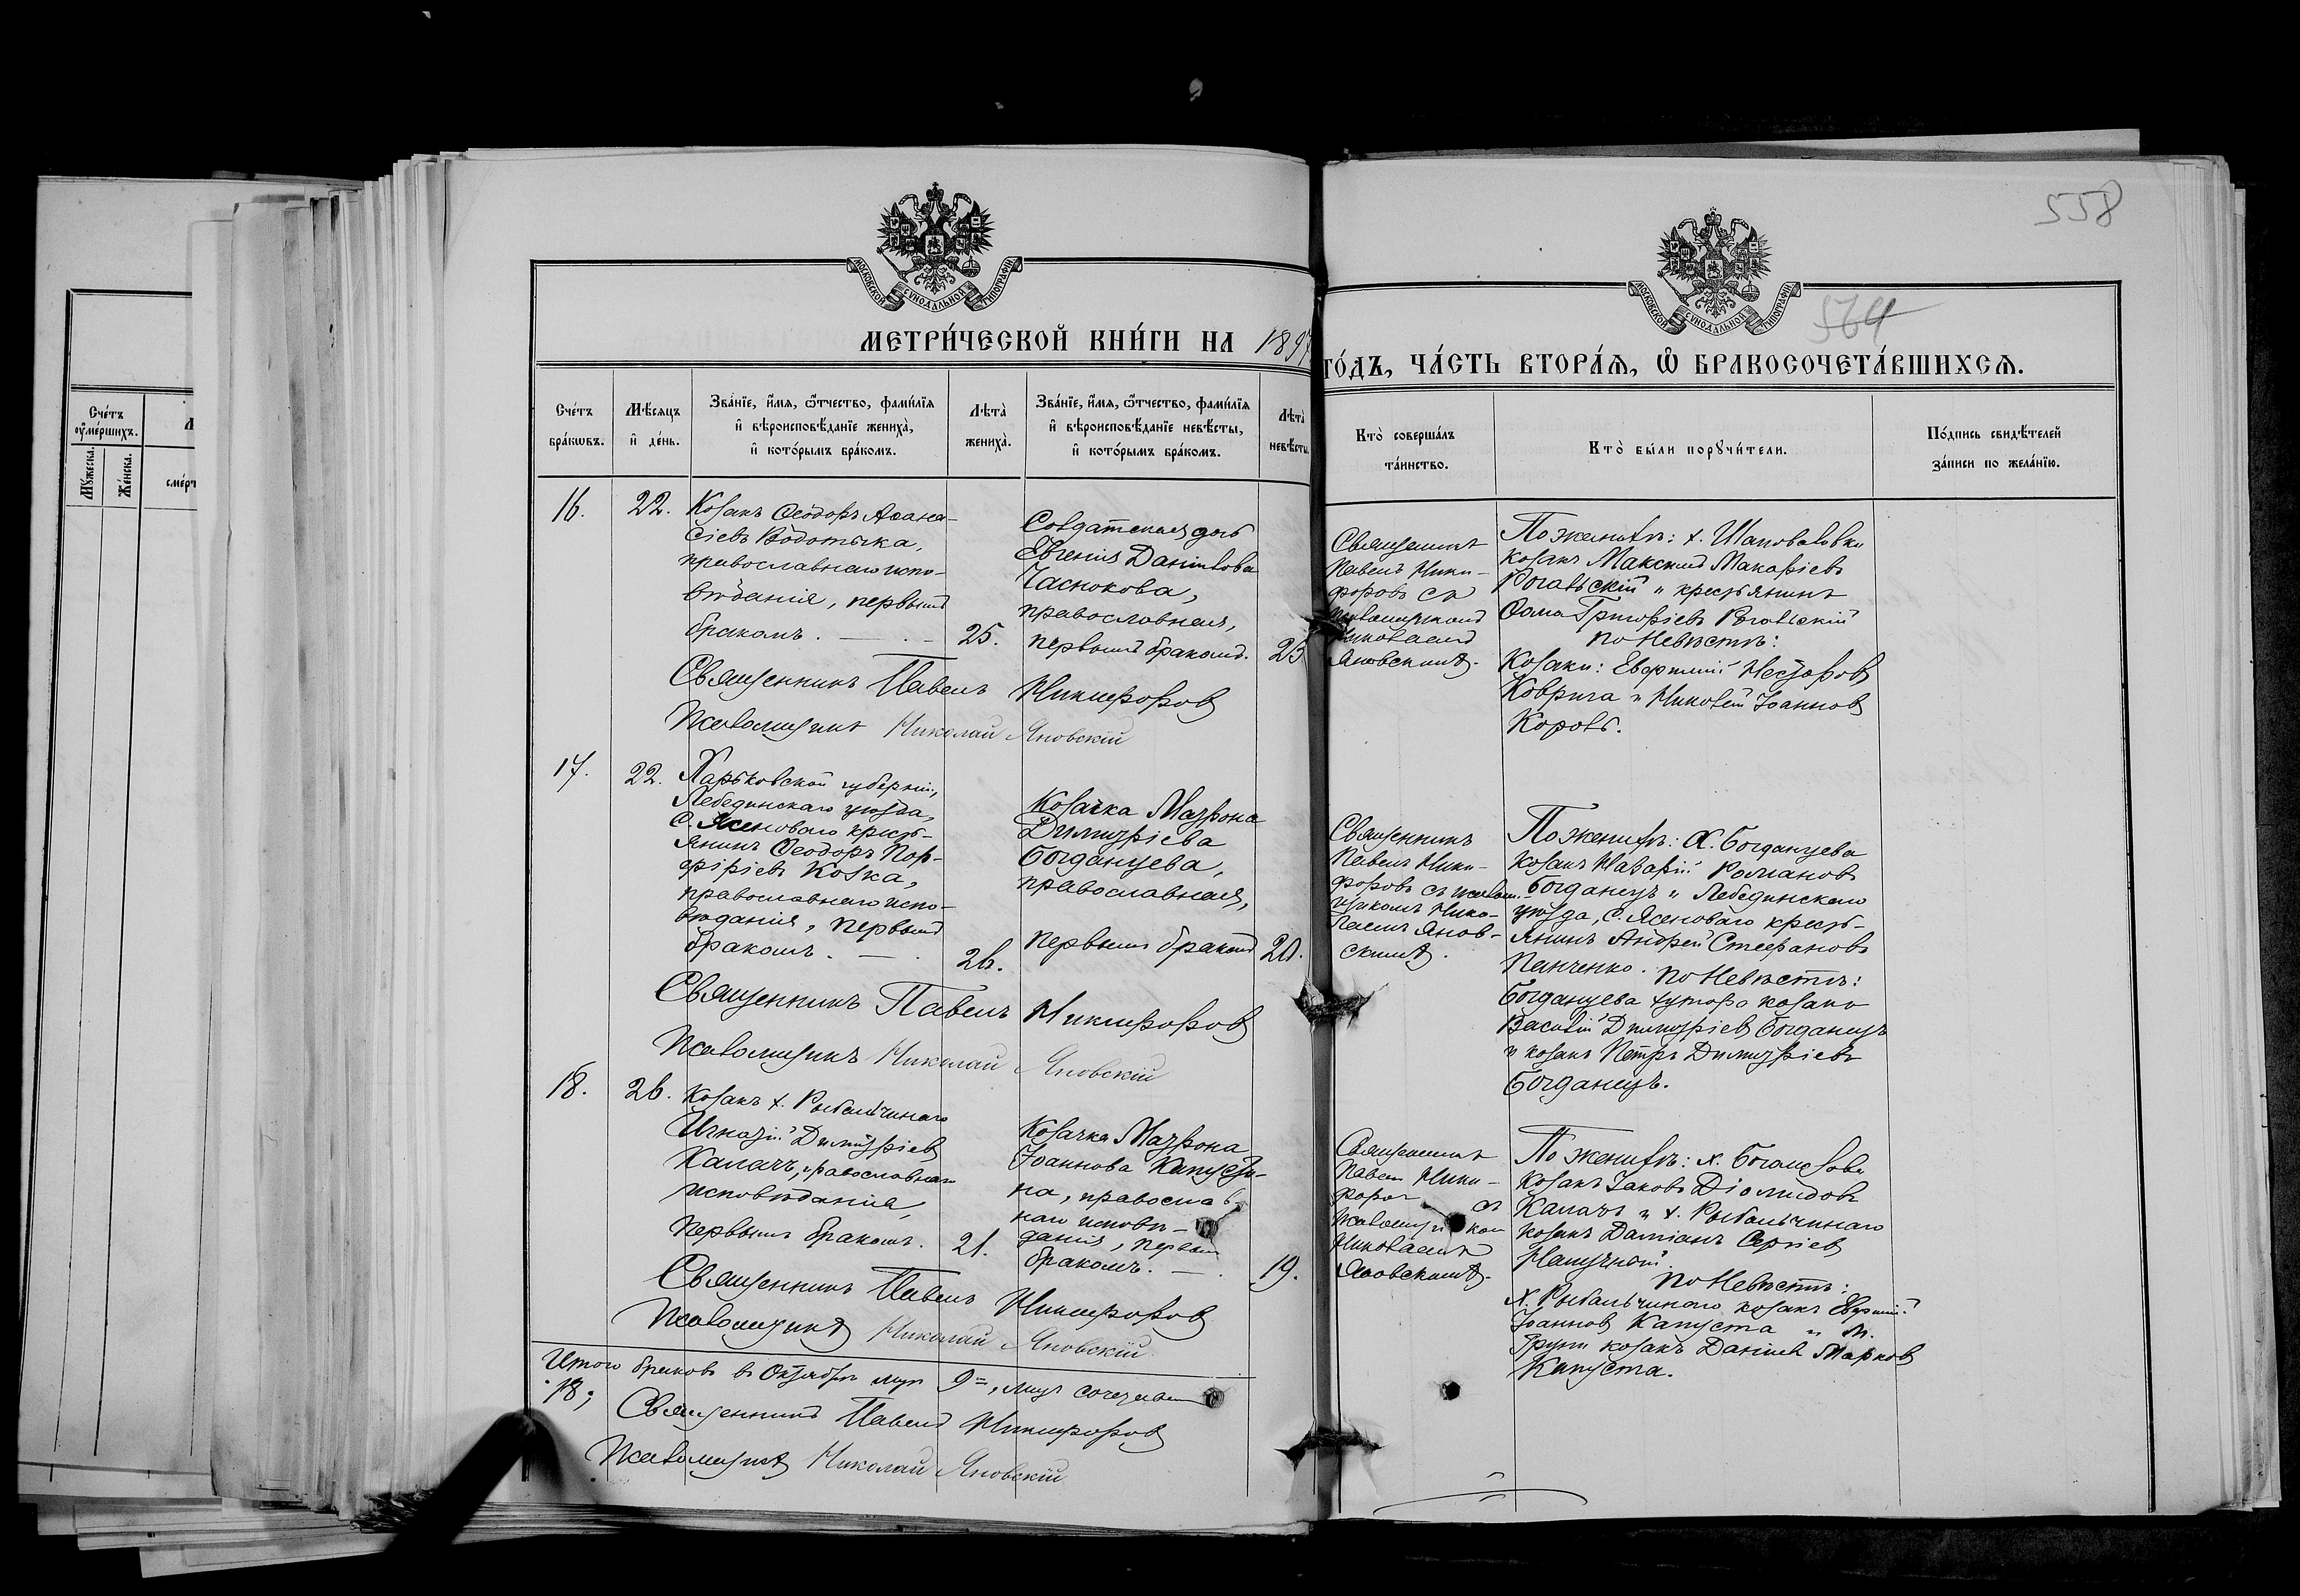 558
564
МОСКОВСКОЙ СУНОДАЛЬНОЙ ТИПОГРАФІИ
МОСКОВСКОЙ СУНОДАЛЬНОЙ ТИПОГРАФІИ
МЕТРИ́ЧЕСКОЙ КНИ́ГИ НА 1897
ГО́ДЪ, ЧА́СТЬ ВТОРА́Ѧ, Ѡ҆ БРАКОСОЧЕТА́ВШИХСѦ.
Сче́тъ оу҆ме́ршихъ.
Мꙋ́жеска.
Же́нска.
Сче́тъ бра́кѡвъ.
Мѣ́сѧцъ и҆ де́нь.
Зва́нїе, и҆́мѧ, ѻ҆́тчество, фами́лїѧ
и҆ вѣроисповѣ́данїе жениха̀,
и҆ кото́рымъ бра́комъ.
Лѣ́та̀ жениха̀.
Зва́нїе, и҆́мѧ, ѻ҆́тчество, фами́лїѧ
и҆ вѣроисповѣ́данїе невѣ́сты,
и҆ кото́рымъ бра́комъ.
Лѣ́та̀ невѣ́сты.
Кто̀ соверша́лъ та́инство.
Кто̀ бы́ли порꙋчи́тели.
По́дпись свидѣ́телей
за́писи по жела́нїю.
16.
22.
Козакъ Ѳеодоръ Аѳана-
сіевъ Водотыка,
православнаго испо-
вѣданія, первымъ
бракомъ.
25.
Солдатская дочь
Евгенія Даніилова
Часнокова,
православная,
первымъ бракомъ.
23
Священникъ
Павелъ Ники-
форовъ съ
псаломщикомъ
Николаемъ
Яновскимъ.
По женихѣ: х. Шаповаловки
козакъ Максимъ Макаріевъ
Рогальскій и крестьянинъ
Ѳома Григоріевъ Рогальскій
по невѣстѣ:
Козаки: Евфимій Несторовъ
Коврига и Николай Іоанновъ
Король.
Священникъ Павелъ Никифоровъ
Псаломщикъ Николай Яновскій
17.
22.
Харьковской губерніи,
Лебединскаго уѣзда,
с. Ясеноваго кресть-
янинъ Ѳеодоръ Пор-
фиріевъ Козка,
православнаго испо-
вѣданія, первымъ
бракомъ.
26.
Козачка Матрона
Димитріева
Богданцева,
православная,
первымъ бракомъ
20.
Священникъ
Павелъ Ники-
форовъ съ псалом-
щикомъ Нико-
лаемъ Янов-
скимъ.
По женихѣ: х. Богданцева
козакъ Назарій Романовъ
Богданецъ и Лебединскаго
уѣзда, с. Ясеноваго кресть-
янинъ Андрей Стефановъ
Панченко. по невѣстѣ:
Богданцева хутора козакъ
Василій Димитріевъ Богданецъ
и козакъ Петръ Димитріевъ
Богданецъ.
Священникъ Павелъ Никифоровъ
Псаломщикъ Николай Яновскій
18.
26.
Козакъ х. Рыбальчинаго
Игнатій Димитріевъ
Капачъ, православнаго
исповѣданія,
первымъ бракомъ.
21.
Козачка Матрона
Іоаннова Капусти-
на, православ-
наго исповѣ-
данія, первымъ
бракомъ.
19.
Священникъ
Павелъ Ники-
форовъ съ
псаломщикомъ
Николаемъ
Яновскимъ.
По женихѣ: х.
козакъ Іаковъ Діомидовъ
Капачъ и х. Рыбальчинаго
козакъ Даміанъ Сергіевъ
по невѣстѣ:
х. Рыбальчинаго козакъ Евфимій
Іоанновъ Капуста и м.
Груни козакъ Даніилъ Марковъ
Капуста.
Священникъ Павелъ Никифоровъ
Псаломщикъ Николай Яновскій
Итого браковъ въ Октябрѣ мцѣ 9=, лицъ
18;
Священникъ Павелъ Никифоровъ
Псаломщикъ Николай Яновскій